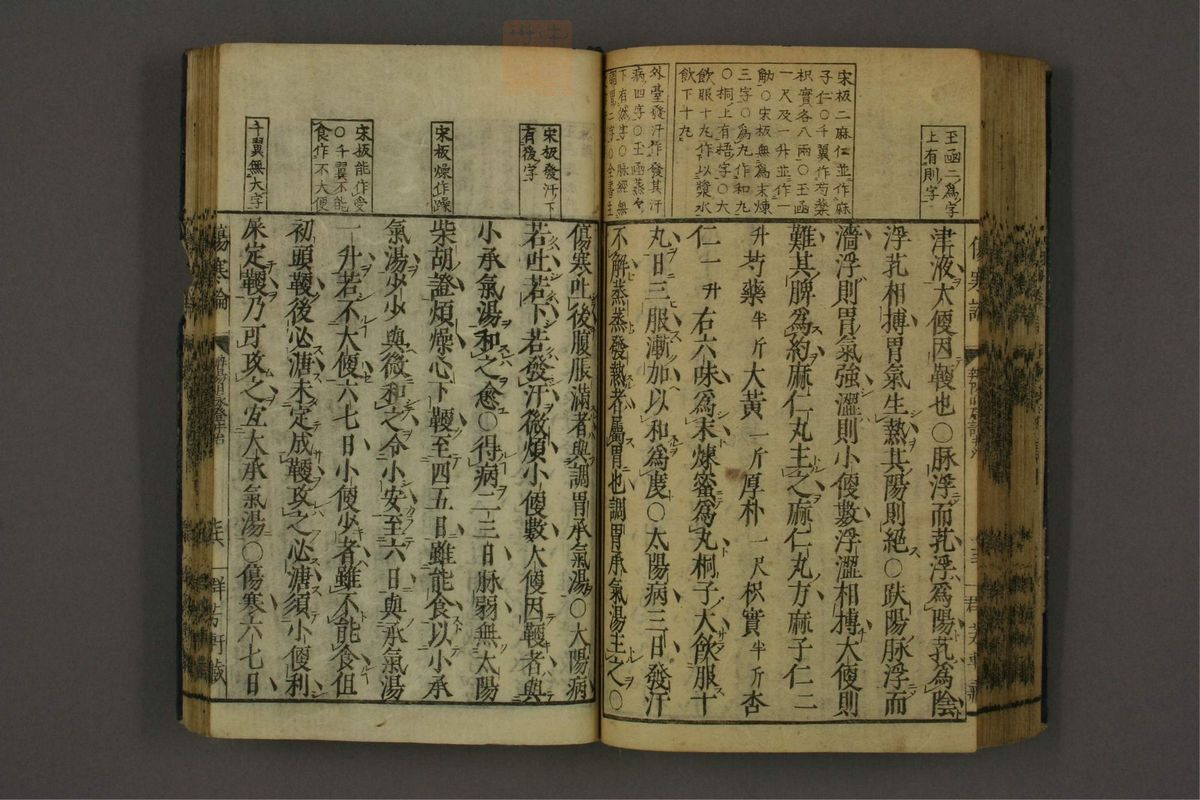 玉函二爲字
上有則字
宋板二麻仁並作麻
子仁〇千翼作芍藥
枳實各八兩〇玉函
一尺及一升並作一
觔〇宋板無爲末煉
三字〇爲丸作和丸
〇桐上有梧字〇大
飲服十丸作以漿水
飲下十丸
外臺發汗作發其汗
病四字〇玉函蒸蒸
下有然字〇脉經無
津液大便因鞕也〇脉浮而芤浮爲陽芤爲陰
浮芤相搏胃氣生熱其陽則絕〇趺陽脉浮而
濇浮則胃氣強濇則小便數浮濇相搏大便則
難其脾爲約麻仁丸主之麻仁丸方麻子仁二
升芍藥半斤大黃一斤厚朴一尺枳實半斤杏
仁一升右六味爲末煉蜜爲丸桐子大飲服十
丸日三服漸加以和爲度〇太陽病三日發汗
不解蒸蒸發熱者屬胃也調胃承氣湯主之〇
傷寒論
宋板發汗下
有後字
宋板燥作躁
宋板能作受
〇千翼不能
食作不大便
千翼無大字
傷寒吐後腹脹滿者與調胃承氣湯〇太陽病
若吐若下若發汗微煩小便數大便因鞕者與
小承氣湯和之愈〇得病二三日脉弱無太陽
柴胡證煩燥心下鞕至四五日雖能食以小承
氣湯少少與微和之令小安至六日與承氣湯
一升若不大便六七日小便少者雖不能食但
初頭鞕後必溏未定成鞕攻之必溏須小便利
屎定鞕乃可攻之宜大承氣湯〇傷寒六七日
傷寒論